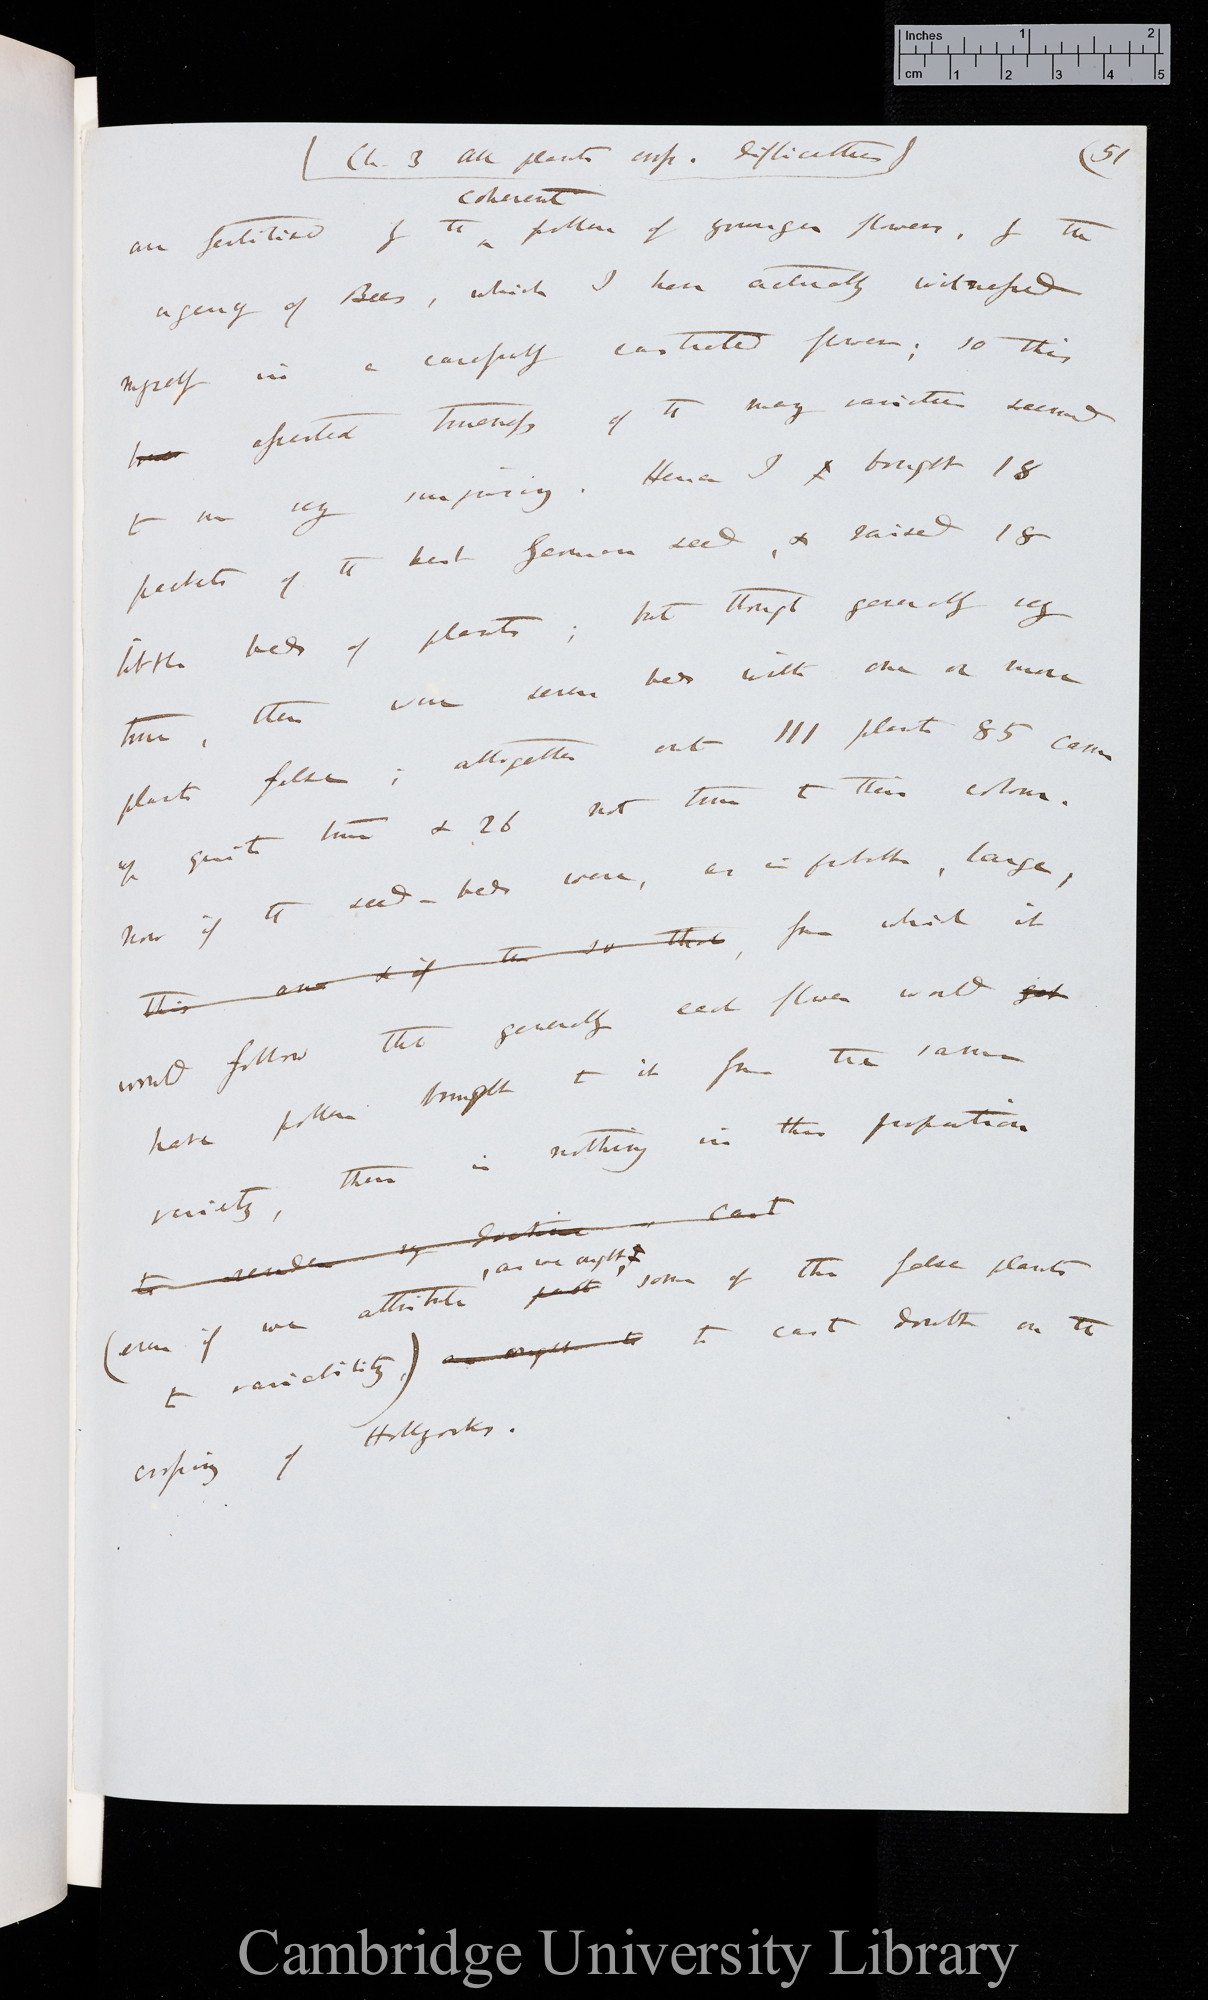 Inches 1 2
cm 1 2 3 4 5
(Ch. 3 All plants cross. Difficulties)
(51
coherent
are fertilised by the pollen of younger flowers, by the
agency of Bees, which I have actually witnessed
myself in a carefully castrated flower; so this
asserted trueness of the many varieties seemed
to me very surprising. Hence I bought 18
packets of the best German seed, & raised 18
little beds of plants; but though generally very
true, there were seven beds with one or more
plants false; altogether out 111 plants 85 came
up quite true & 26 not true to their colour.
Now if the seed-beds were, as is probable, large,
this and & if the so that, from which it
would follow that generally each flower would get
have pollen brought to it from the same
variety, there is nothing in this proportion
to render my doctrine cast
, as we ought,
(even if we attribute part some of the false plants
to variability,) as ought to to cast doubt on the
crossing of Hollyocks.
Cambridge University Library